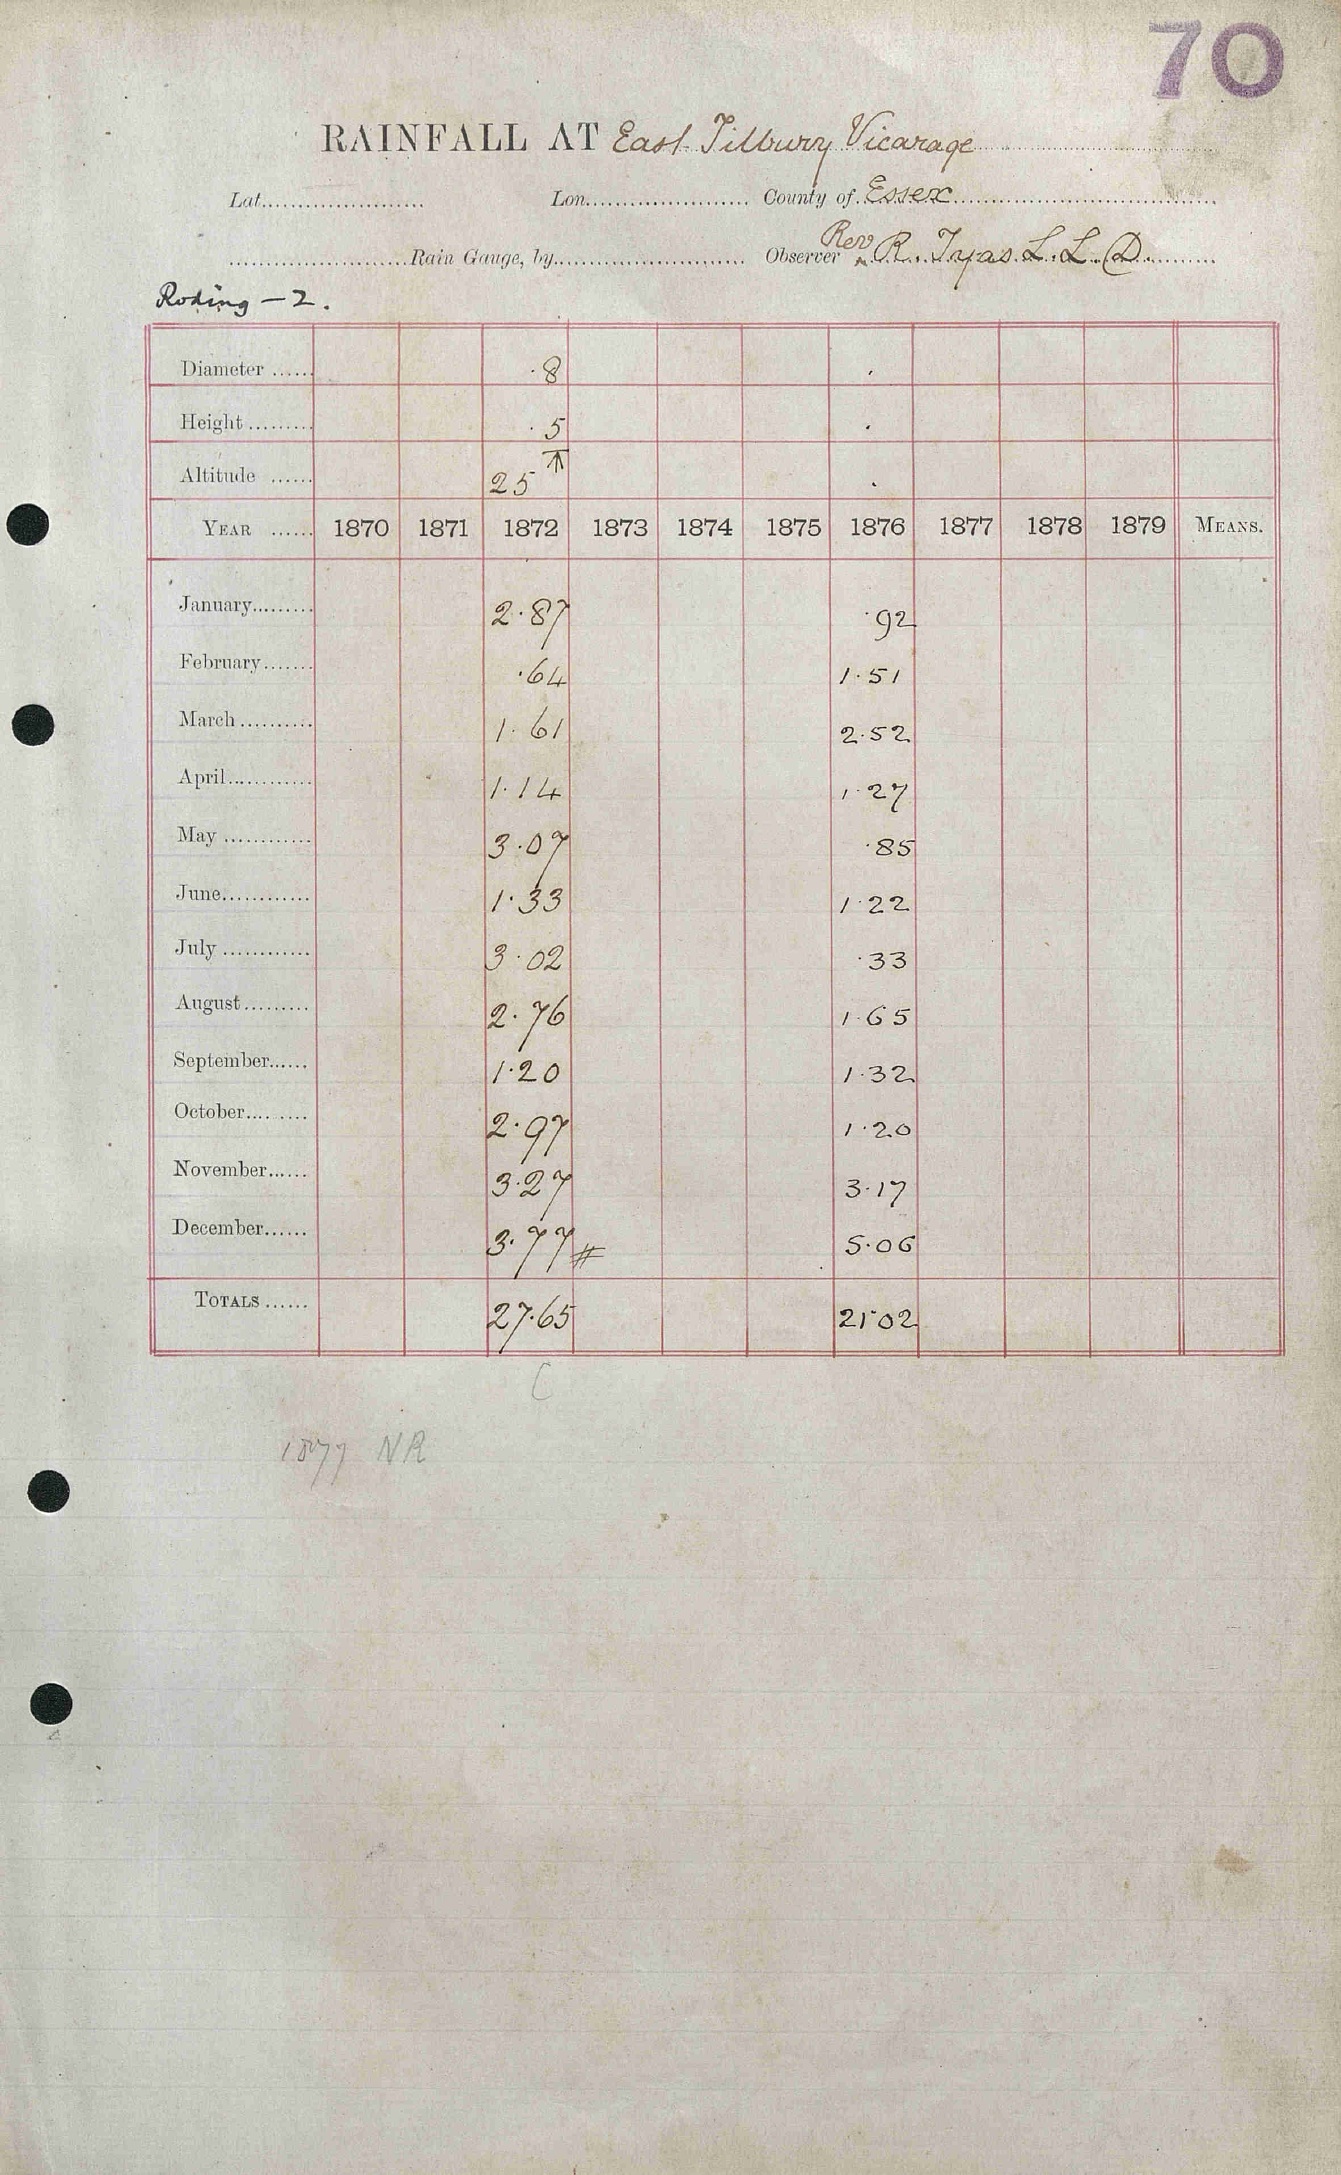 70
RAINFALL AT East Tilbury Vicarage
Lat. Lon. County of Essex
Rain Gauge, by Observer Rev R. Tyas L. L. D.
Roding — 2.
Diameter ...... ·8 ·
Height ......... ·5 ·
Altitude ...... 25 ⊼ ·
YEAR ...... 1870 1871 1872 1873 1874 1875 1876 1877 1878 1879 MEANS.
January......... 2·87 ·92
February....... ·64 1·51
March.......... 1·61 2·52
April............ 1·14 1·27
May ............ 3·07 ·85
June............ 1·33 1·22
July ............ 3·02 ·33
August......... 2·76 1·65
September...... 1·20 1·32
October......... 2·97 1·20
November...... 3·27 3·17
December...... 3·77 # 5·06
TOTALS ...... 27·65 21·02
C
1877 NR